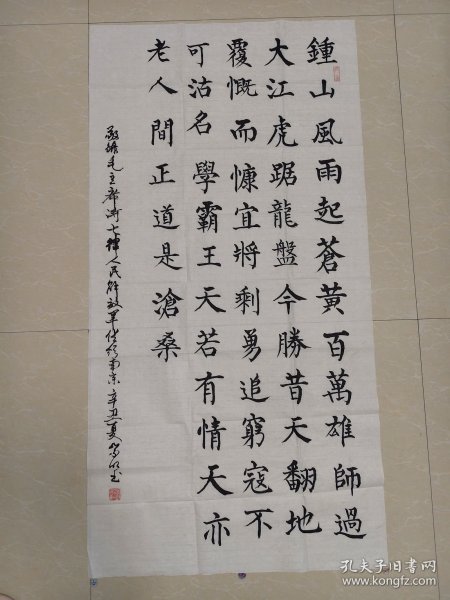 鍾山風雨起蒼黃百萬雄師過
大江虎踞龍盤今勝昔天翻地
覆慨而慷宜將剩勇追窮寇不
可沽名學霸王天若有情天亦
老人間正道是滄桑
毛主席诗七律人民解放军占领南京辛丑夏
孔夫子旧书网
www.kongfz.com